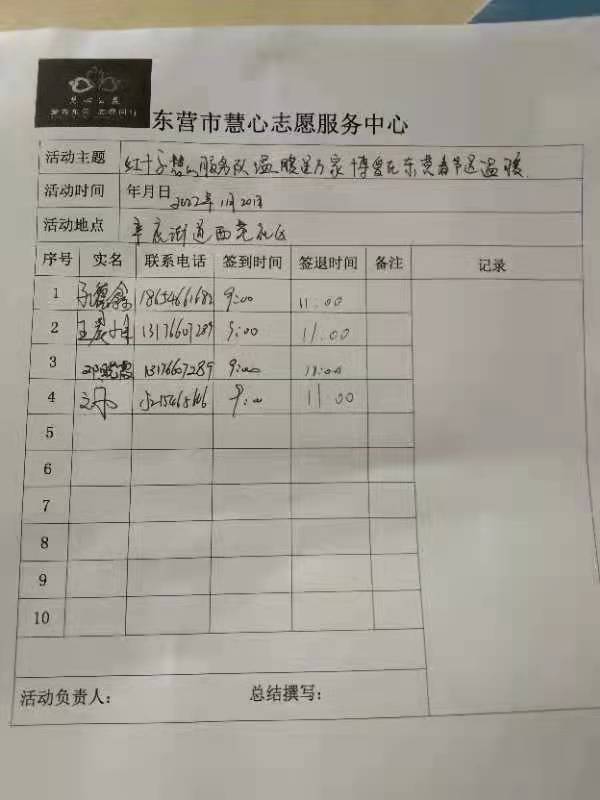 慧心公益
东营市慧心志愿服务中心
活动主题 红十字慧心服务队温暖送万家 博爱在东营春节送温暖
活动时间 年月日 2022年1月20日
活动地点 辛店街道西营社区
序号 实名 联系电话 签到时间 签退时间 备注 记录
1 18654661682 9:00 11.00
2 王晨 13176607289 9:00 11.00
3 邓晓霞 13176607289 9:00 11:00
4 9:00 11.00
5
6
7
8
9
10
活动负责人: 总结撰写: